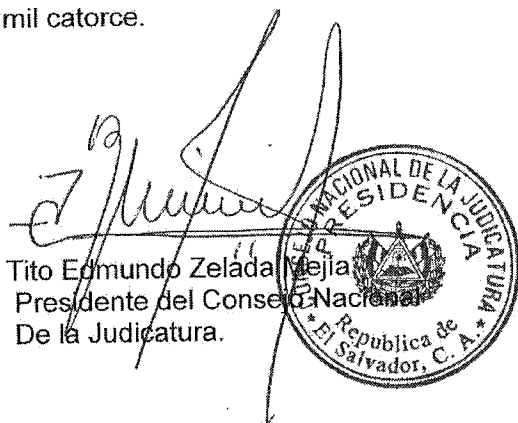 mil catorce.
Tito Edmundo Zelada Mejía
Presidente del Consejo Nacional
De la Judicatura.
CONSEJO NACIONAL DE LA JUDICATURA
PRESIDENCIA
República de
El Salvador, C. A.